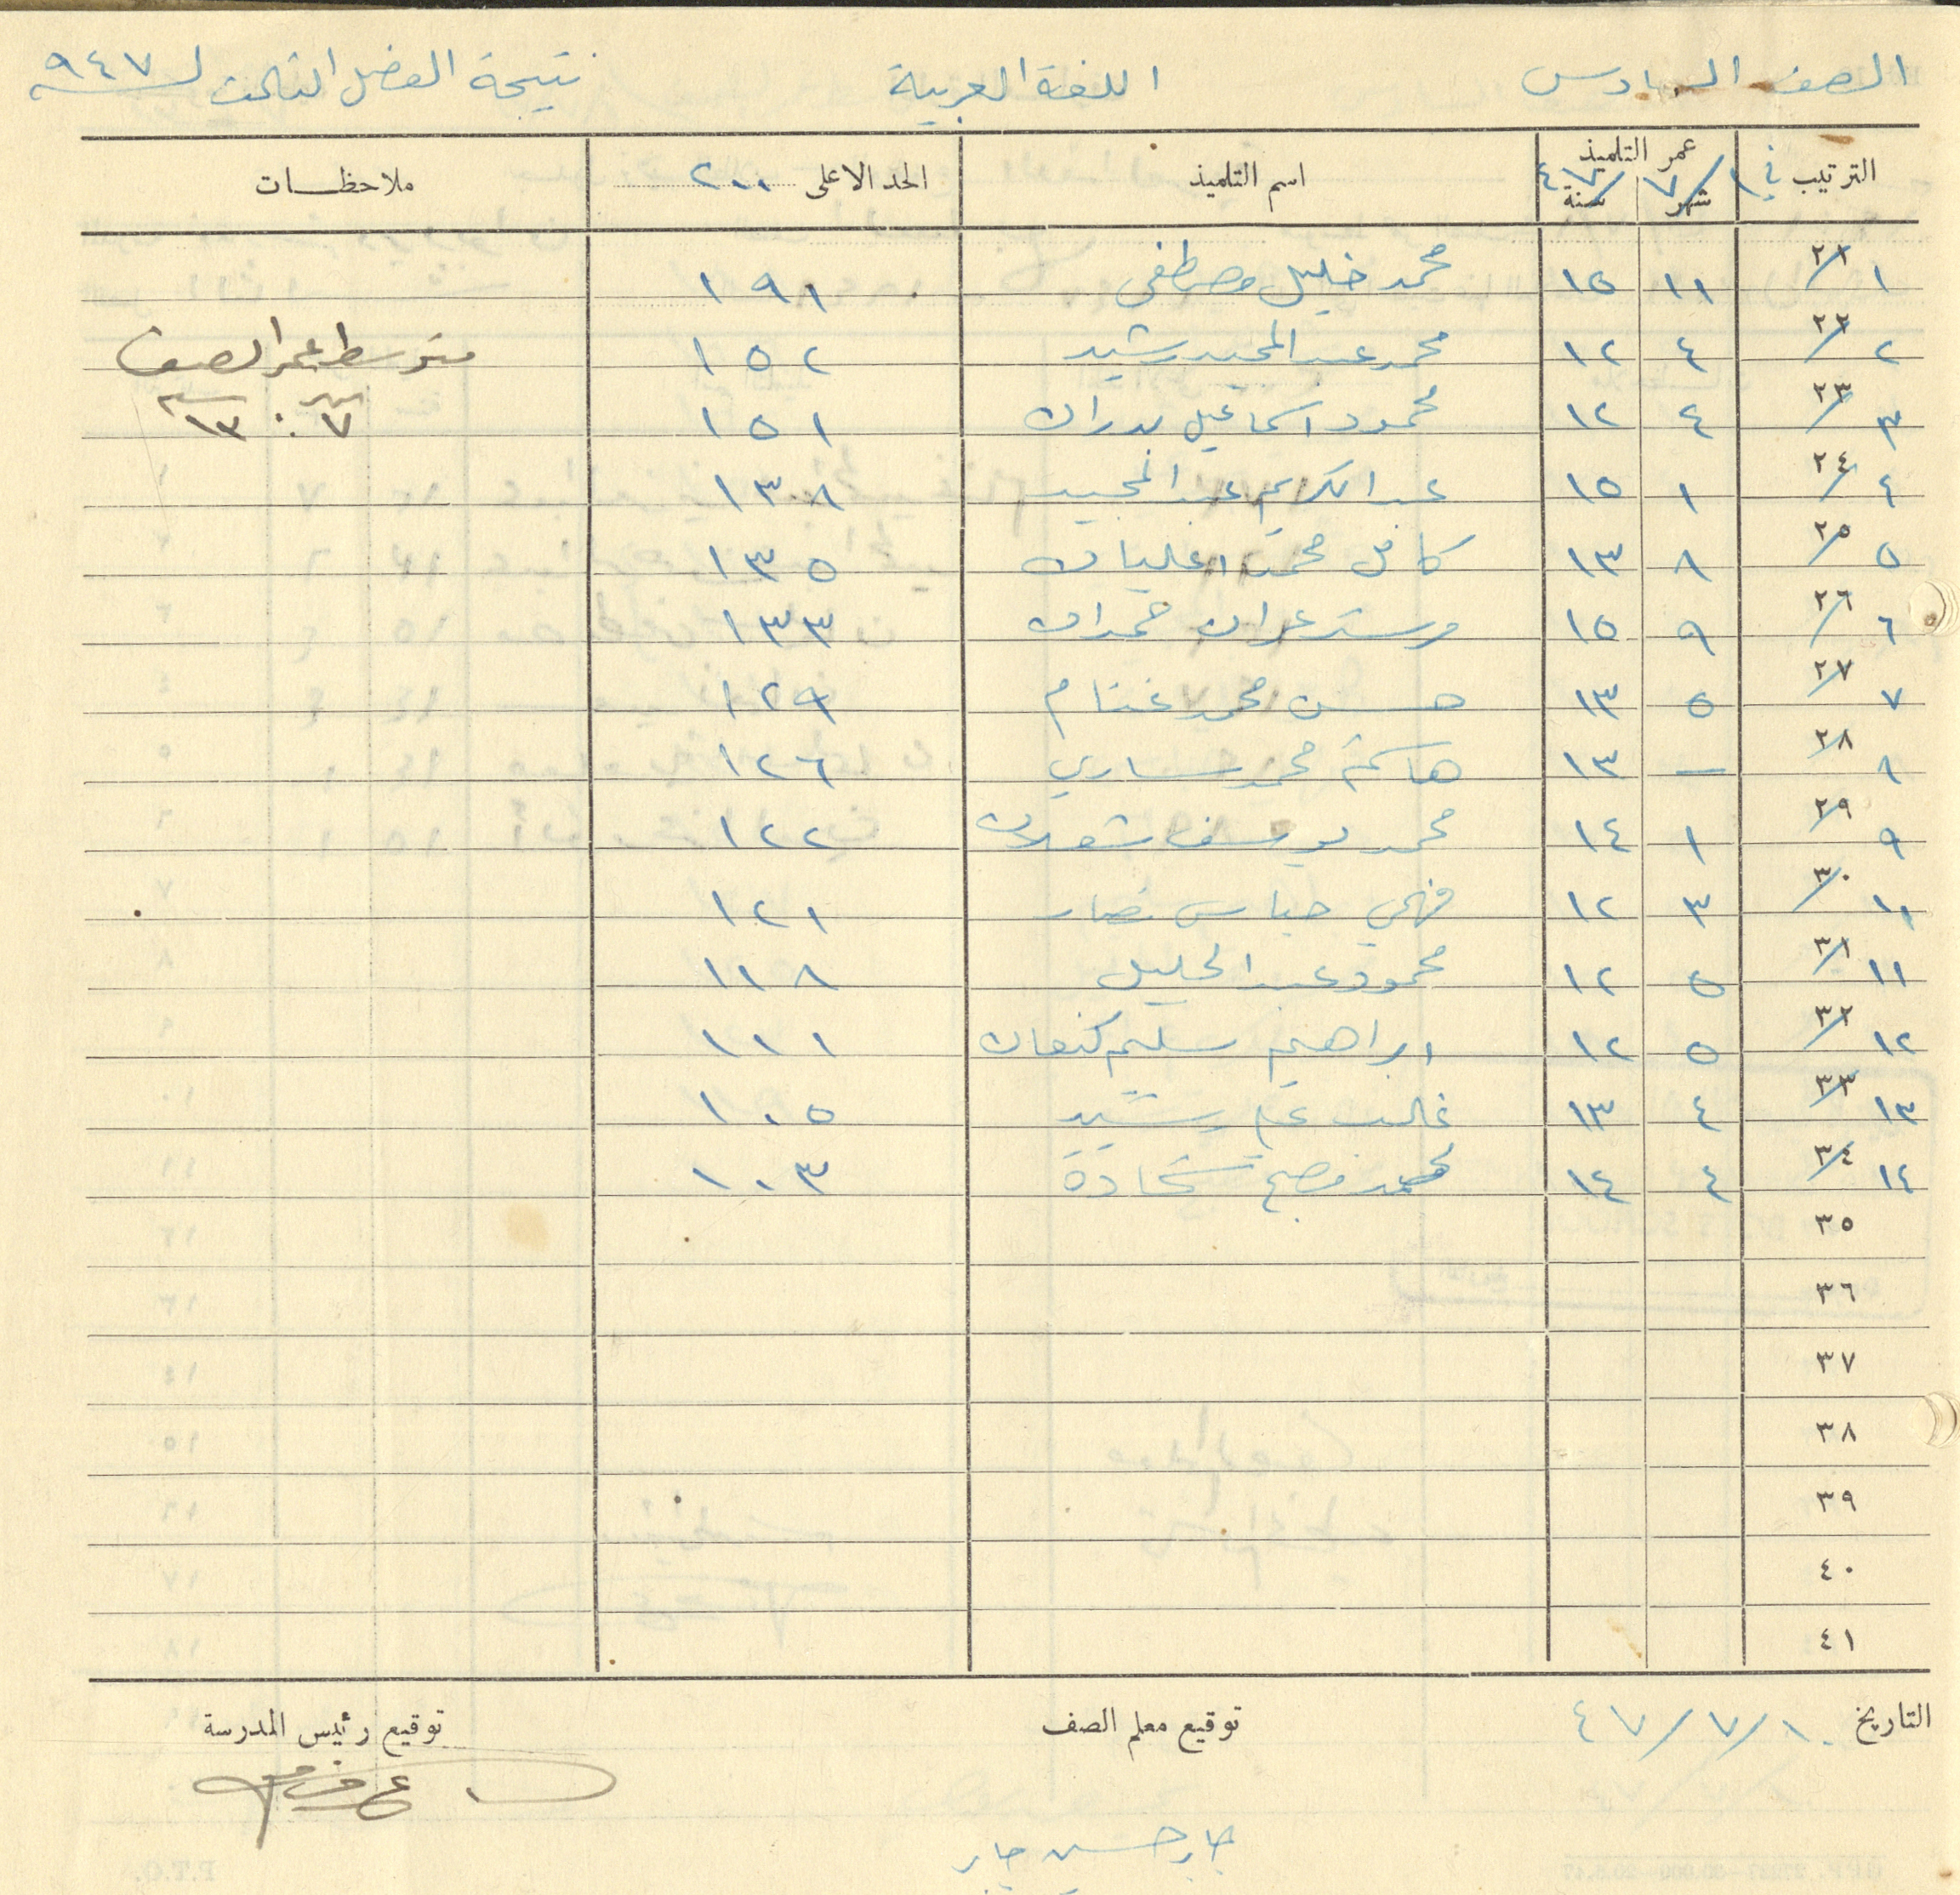 الصف السادس اللغة العربية نتيجة الفصل الثالث لسنة ٩٤٧
الترتيب في ١/٧/٤٧ عمر التلميذ شهر سنة اسم التلميذ الحد الاعلى ٢٠٠ ملاحظات
١ ٢١ ١١ ١٥ محمد خليل مصطفى ١٩١
٢ ٢٢ ٤ ١٢ محمد عبد المجيد رشيد ١٥٢ متوسط عمر الصف
٣ ٢٣ ٤ ١٢ محمود اسماعيل بدران ١٥١ ٧ شهر : ١٣ سنة
٤ ٢٤ ١ ١٥ عبد الكريم عبد المجيد ١٣٨
٥ ٢٥ ٨ ١٣ كامل محمد عليان ١٣٥
٦ ٢٦ ٩ ١٥ حمدان ١٣٣
٧ ٢٧ ٥ ١٣ حسن محمد غنام ١٢٩
٨ ٢٨ — ١٣ محمد ساري ١٢٦
٩ ٢٩ ١ ١٤ محمد يوسف شعلان ١٢٢
١٠ ٣٠ ٣ ١٢ فهمي نصار ١٢١
١١ ٣١ ٥ ١٢ محمود عبد الجليل ١١٨
١٢ ٣٢ ٥ ١٢ ابراهيم سليم كنعان ١١١
١٣ ٣٣ ٤ ١٣ غالب رشيد ١٠٥
١٤ ٣٤ ٤ ١٤ محمد شحادة ١٠٣
٣٥
٣٦
٣٧
٣٨
٣٩
٤٠
٤١
التاريخ ١٠/٧/٤٧ توقيع معلم الصف توقيع رئيس المدرسة
جابر حسين جابر